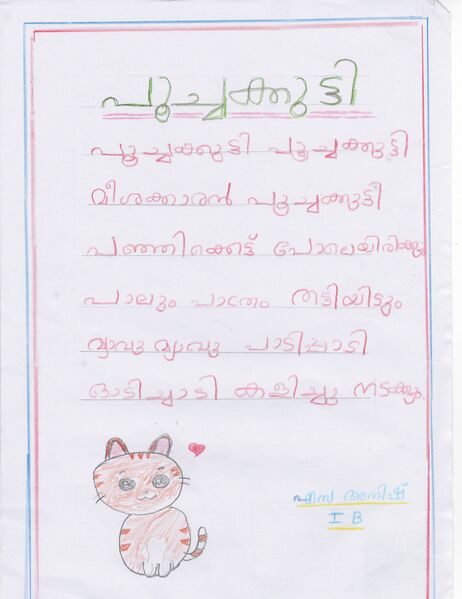 പൂച്ചക്കുട്ടി
പൂച്ചക്കുട്ടി പൂച്ചക്കുട്ടി
മീശക്കാരൻ പൂച്ചക്കുട്ടി
പഞ്ഞിക്കെട്ട് പോലെയിരിക്കും
പാലും പാത്രം തട്ടിയിട്ടും
മ്യാവു മ്യാവു പാടിപ്പാടി
ഓടിച്ചാടി കളിച്ചു നടക്കും.
എസ അനീഷ്
I B